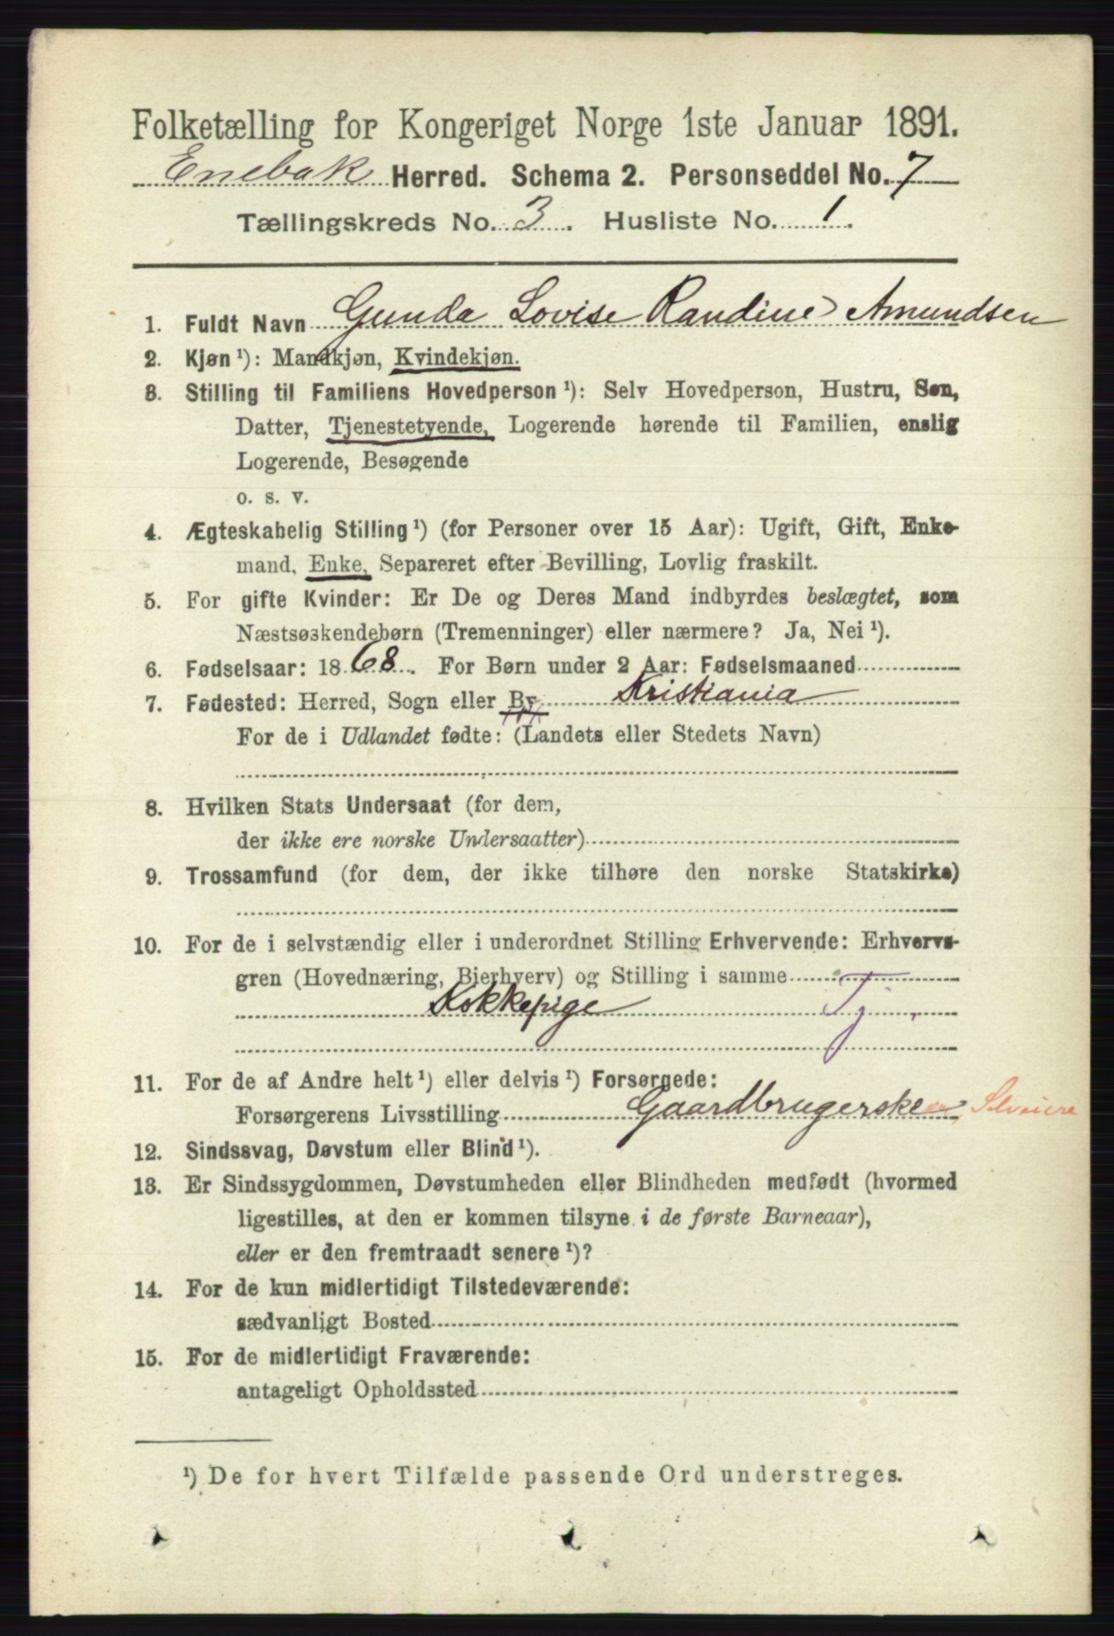 Folketælling for Kongeriget Norge 1ste Januar 1891.
Enebak Herred. Schema 2. Personseddel No. 7
Tællingskreds No. 3. Husliste No. 1.
1. Fuldt Navn Gunda Lovise Randine Amundsen
2. Kjøn ¹): Mandkjøn, Kvindekjøn.
3. Stilling til Familiens Hovedperson ¹): Selv Hovedperson, Hustru, Søn,
Datter, Tjenestetyende, Logerende hørende til Familien, enslig
Logerende, Besøgende
o. s. v.
4. Ægteskabelig Stilling ¹) (for Personer over 15 Aar): Ugift, Gift, Enke-
mand, Enke, Separeret efter Bevilling, Lovlig fraskilt.
5. For gifte Kvinder: Er De og Deres Mand indbyrdes beslægtet, som
Næstsøskendebørn (Tremenninger) eller nærmere? Ja, Nei ¹).
6. Fødselsaar: 1868. For Børn under 2 Aar: Fødselsmaaned
7. Fødested: Herred, Sogn eller By Kristiania
For de i Udlandet fødte: (Landets eller Stedets Navn)
8. Hvilken Stats Undersaat (for dem,
der ikke ere norske Undersaatter)
9. Trossamfund (for dem, der ikke tilhøre den norske Statskirke)
10. For de i selvstændig eller i underordnet Stilling Erhvervende: Erhvervs-
gren (Hovednæring, Bierhverv) og Stilling i samme
Kokkepige Tj.
11. For de af Andre helt ¹) eller delvis ¹) Forsørgede:
Forsørgerens Livsstilling Gaardbrugerske
12. Sindssvag, Døvstum eller Blind ¹).
13. Er Sindssygdommen, Døvstumheden eller Blindheden medfødt (hvormed
ligestilles, at den er kommen tilsyne i de første Barneaar),
eller er den fremtraadt senere ¹)?
14. For de kun midlertidigt Tilstedeværende:
sædvanligt Bosted
15. For de midlertidigt Fraværende:
antageligt Opholdssted
¹) De for hvert Tilfælde passende Ord understreges.